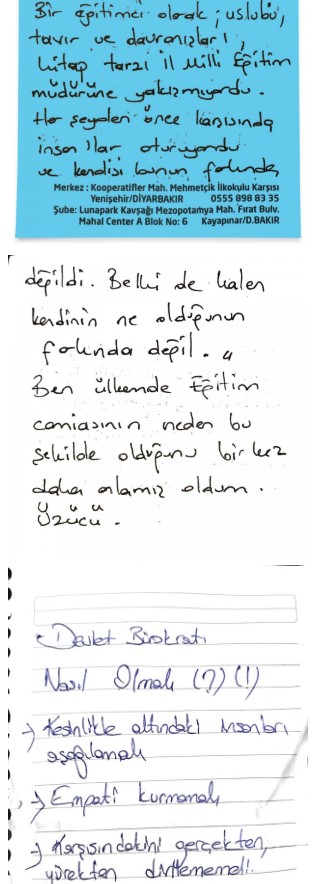 Bir eğitimci olarak; uslubü,
tavır ve davranışları,
hitap tarzı il Milli Eğitim
müdürüne yakışmıyordu.
Her şeyden önce karşısında
insanlar oturuyordu
ve kendisi bunun farkında
Merkez : Kooperatifler Mah. Mehmetçik İlkokulu Karşısı
Yenişehir/DİYARBAKIR 0555 898 83 35
Şube: Lunapark Kavşağı Mezopotamya Mah. Fırat Bulv.
Mahal Center A Blok No: 6 Kayapınar/D.BAKIR
değildi. Belki de halen
kendinin ne olduğunun
farkında değil.
Ben ülkemde Eğitim
camiasının neden bu
şekilde olduğunu bir kez
daha anlamış oldum.
Üzücü.
Devlet Bürokratı
Nasıl Olmalı (?) (!)
→ Kesinlikle altındaki insanları
aşağılamalı
→ Empati kurmamalı
→ Karşısındakini gerçekten,
yürekten dinlememeli!